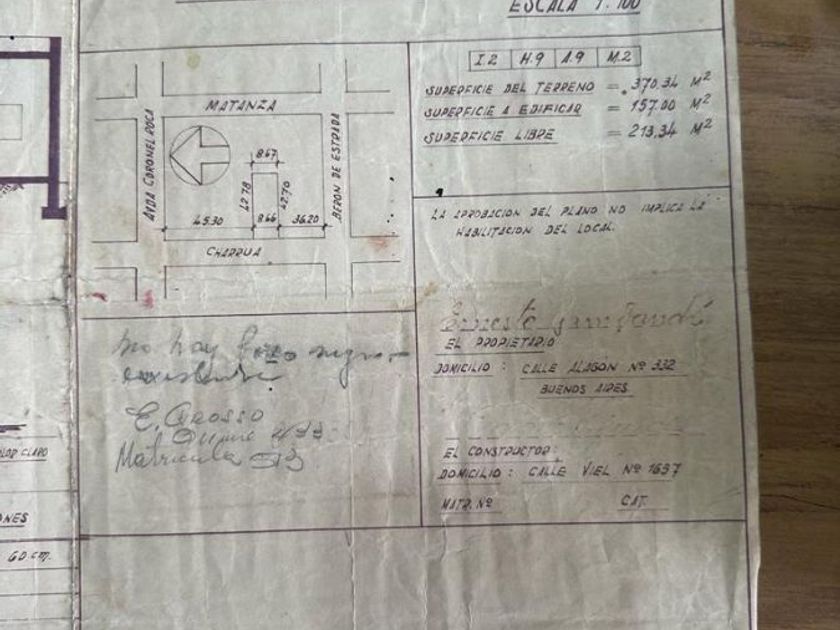 ESCALA 1:100
I.2 H.9 A.9 M.2
SUPERFICIE DEL TERRENO = 370,34 M2
SUPERFICIE A EDIFICAR = 157.00 M2
SUPERFICIE LIBRE = 213,34 M2
LA APROBACION DEL PLANO NO IMPLICA LA
HABILITACION DEL LOCAL.
MATANZA
AVDA CORONEL ROCA
BERON DE ESTRADA
8.67
42.78
42.70
45.30
8.66
36.20
CHARRUA
no hay
E. Grosso
Matricula
EL PROPIETARIO
DOMICILIO: CALLE ALAGÓN Nº 332
BUENOS AIRES
EL CONSTRUCTOR:
DOMICILIO: CALLE VIEL Nº 1657
MATR. Nº CAT.
CLARO
ONES
60 cm.